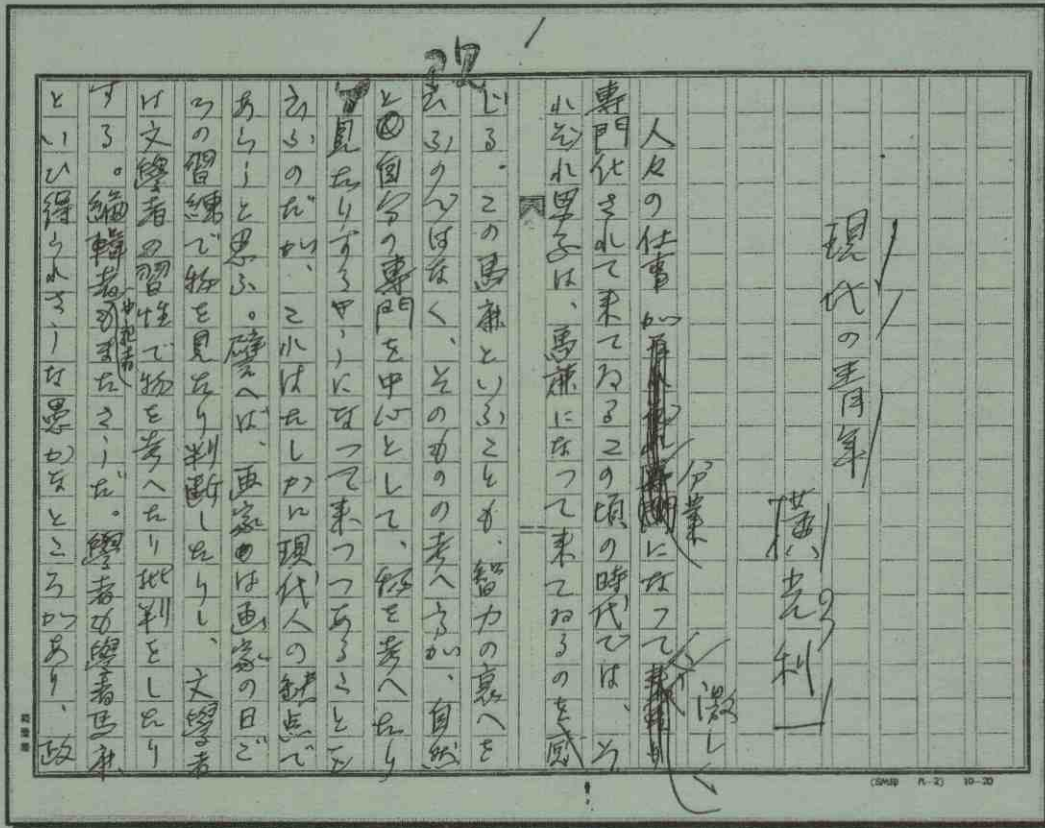 現代の青年
横光利一
人々の仕事が分業になつて激しく
専門化されて来てゐるこの頃の時代では、そ
れぞれ男子は、馬鹿になつて来てゐるのを感
じる。この馬鹿といふことも、智力の衰へを
云ふのではなく、そのものの考へ方が、自然
と自分の専門を中心として、物を考へたり
見たりするやうになつて来つつあることを
云ふのだが、これはたしかに現代人の缺点で
あらうと思ふ。譬へば、画家は画家の目で
の習練で物を見たり判断したりし、文學者
は文學者の習性で物を考へたり批判をしたり
する。編輯者もまたさうだ。學者も學者馬鹿
といひ得られさうな愚かなところがあり、政
(SM印 A-2) 10-20